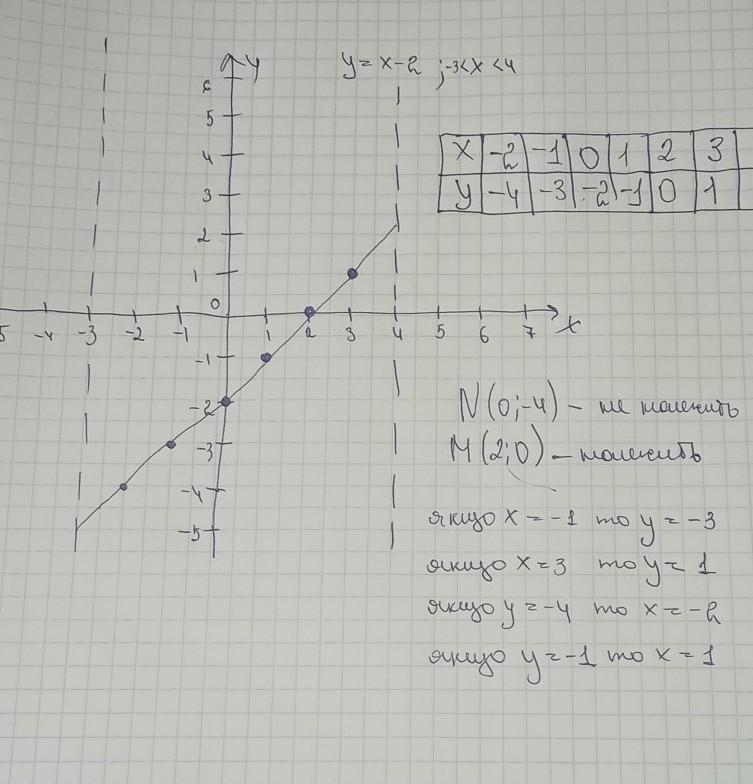 y = x-2 ; -3<x<4
y
6
5
4
3
2
1
0
5 -4 -3 -2 -1 1 2 3 4 5 6 7 x
-1
-2
-3
-4
-5
x -2 -1 0 1 2 3
y -4 -3 -2 -1 0 1
N(0;-4) - не належить
M(2;0) - належить
якщо x = -1 то y = -3
якщо x = 3 то y = 1
якщо y = -4 то x = -2
якщо y = -1 то x = 1